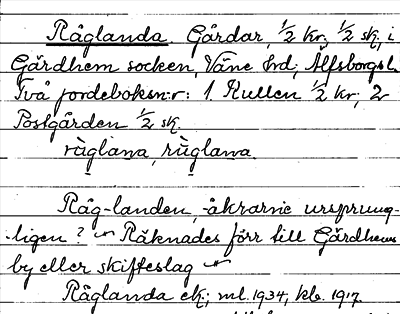 Råglanda. Gårdar, 1/2 kr, 1/2 sk, i
Gärdhem socken, Väne hd; Älfsborgsl.
Två jordeboksn:r: 1. Rullen 1/2 kr, 2
Postgården 1/2 sk.
råglana, rùglana.
Råg-landen, -åkrarne ursprung-
ligen? Räknades förr till Gärdhems
by eller skifteslag
Råglanda ek; ml. 1934, kb. 1917